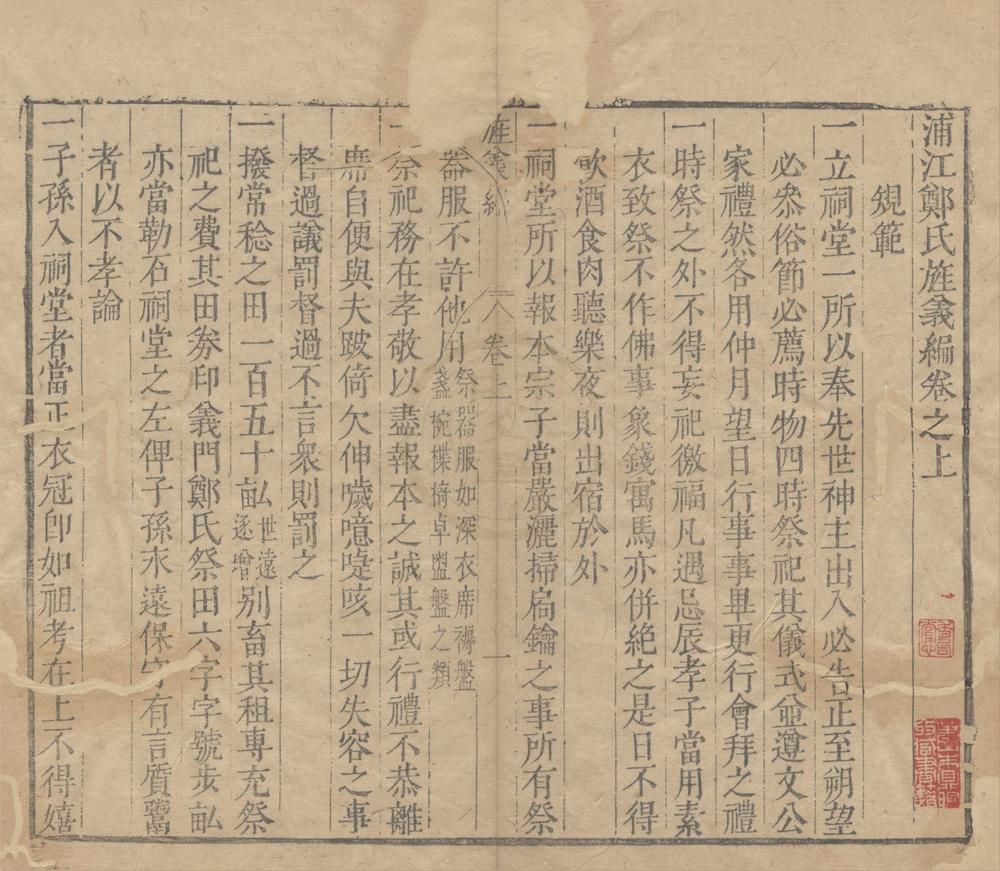 浦江鄭氏旌義編卷之上
規範
一立祠堂一所以奉先世神主出入必告正至朔望
必叅俗節必薦時物四時祭祀其儀式並遵文公
家禮然各用仲月望日行事事畢更行會拜之禮
一時祭之外不得妄祀徼福凡遇忌辰孝子當用素
衣致祭不作佛事象錢寓馬亦併絶之是日不得
飲酒食肉聽樂夜則出宿於外
一祠堂所以報本宗子當嚴灑掃扃鑰之事所有祭
旌義編 卷上 一
器服不許他用祭器服如深衣席褥盤盞椀楪椅卓盥盤之類
一祭祀務在孝敬以盡報本之誠其或行禮不恭離
席自便與夫跛倚欠伸噦噫嚏咳一切失容之事
督過議罰督過不言衆則罰之
一撥常稔之田一百五十畝世遠逐增别畜其租專充祭
祀之費其田券印義門鄭氏祭田六字字號步畝
亦當勒石祠堂之左俾子孫永遠保守有言質鬻
者以不孝論
一子孫入祠堂者當正衣冠即如祖考在上不得嬉